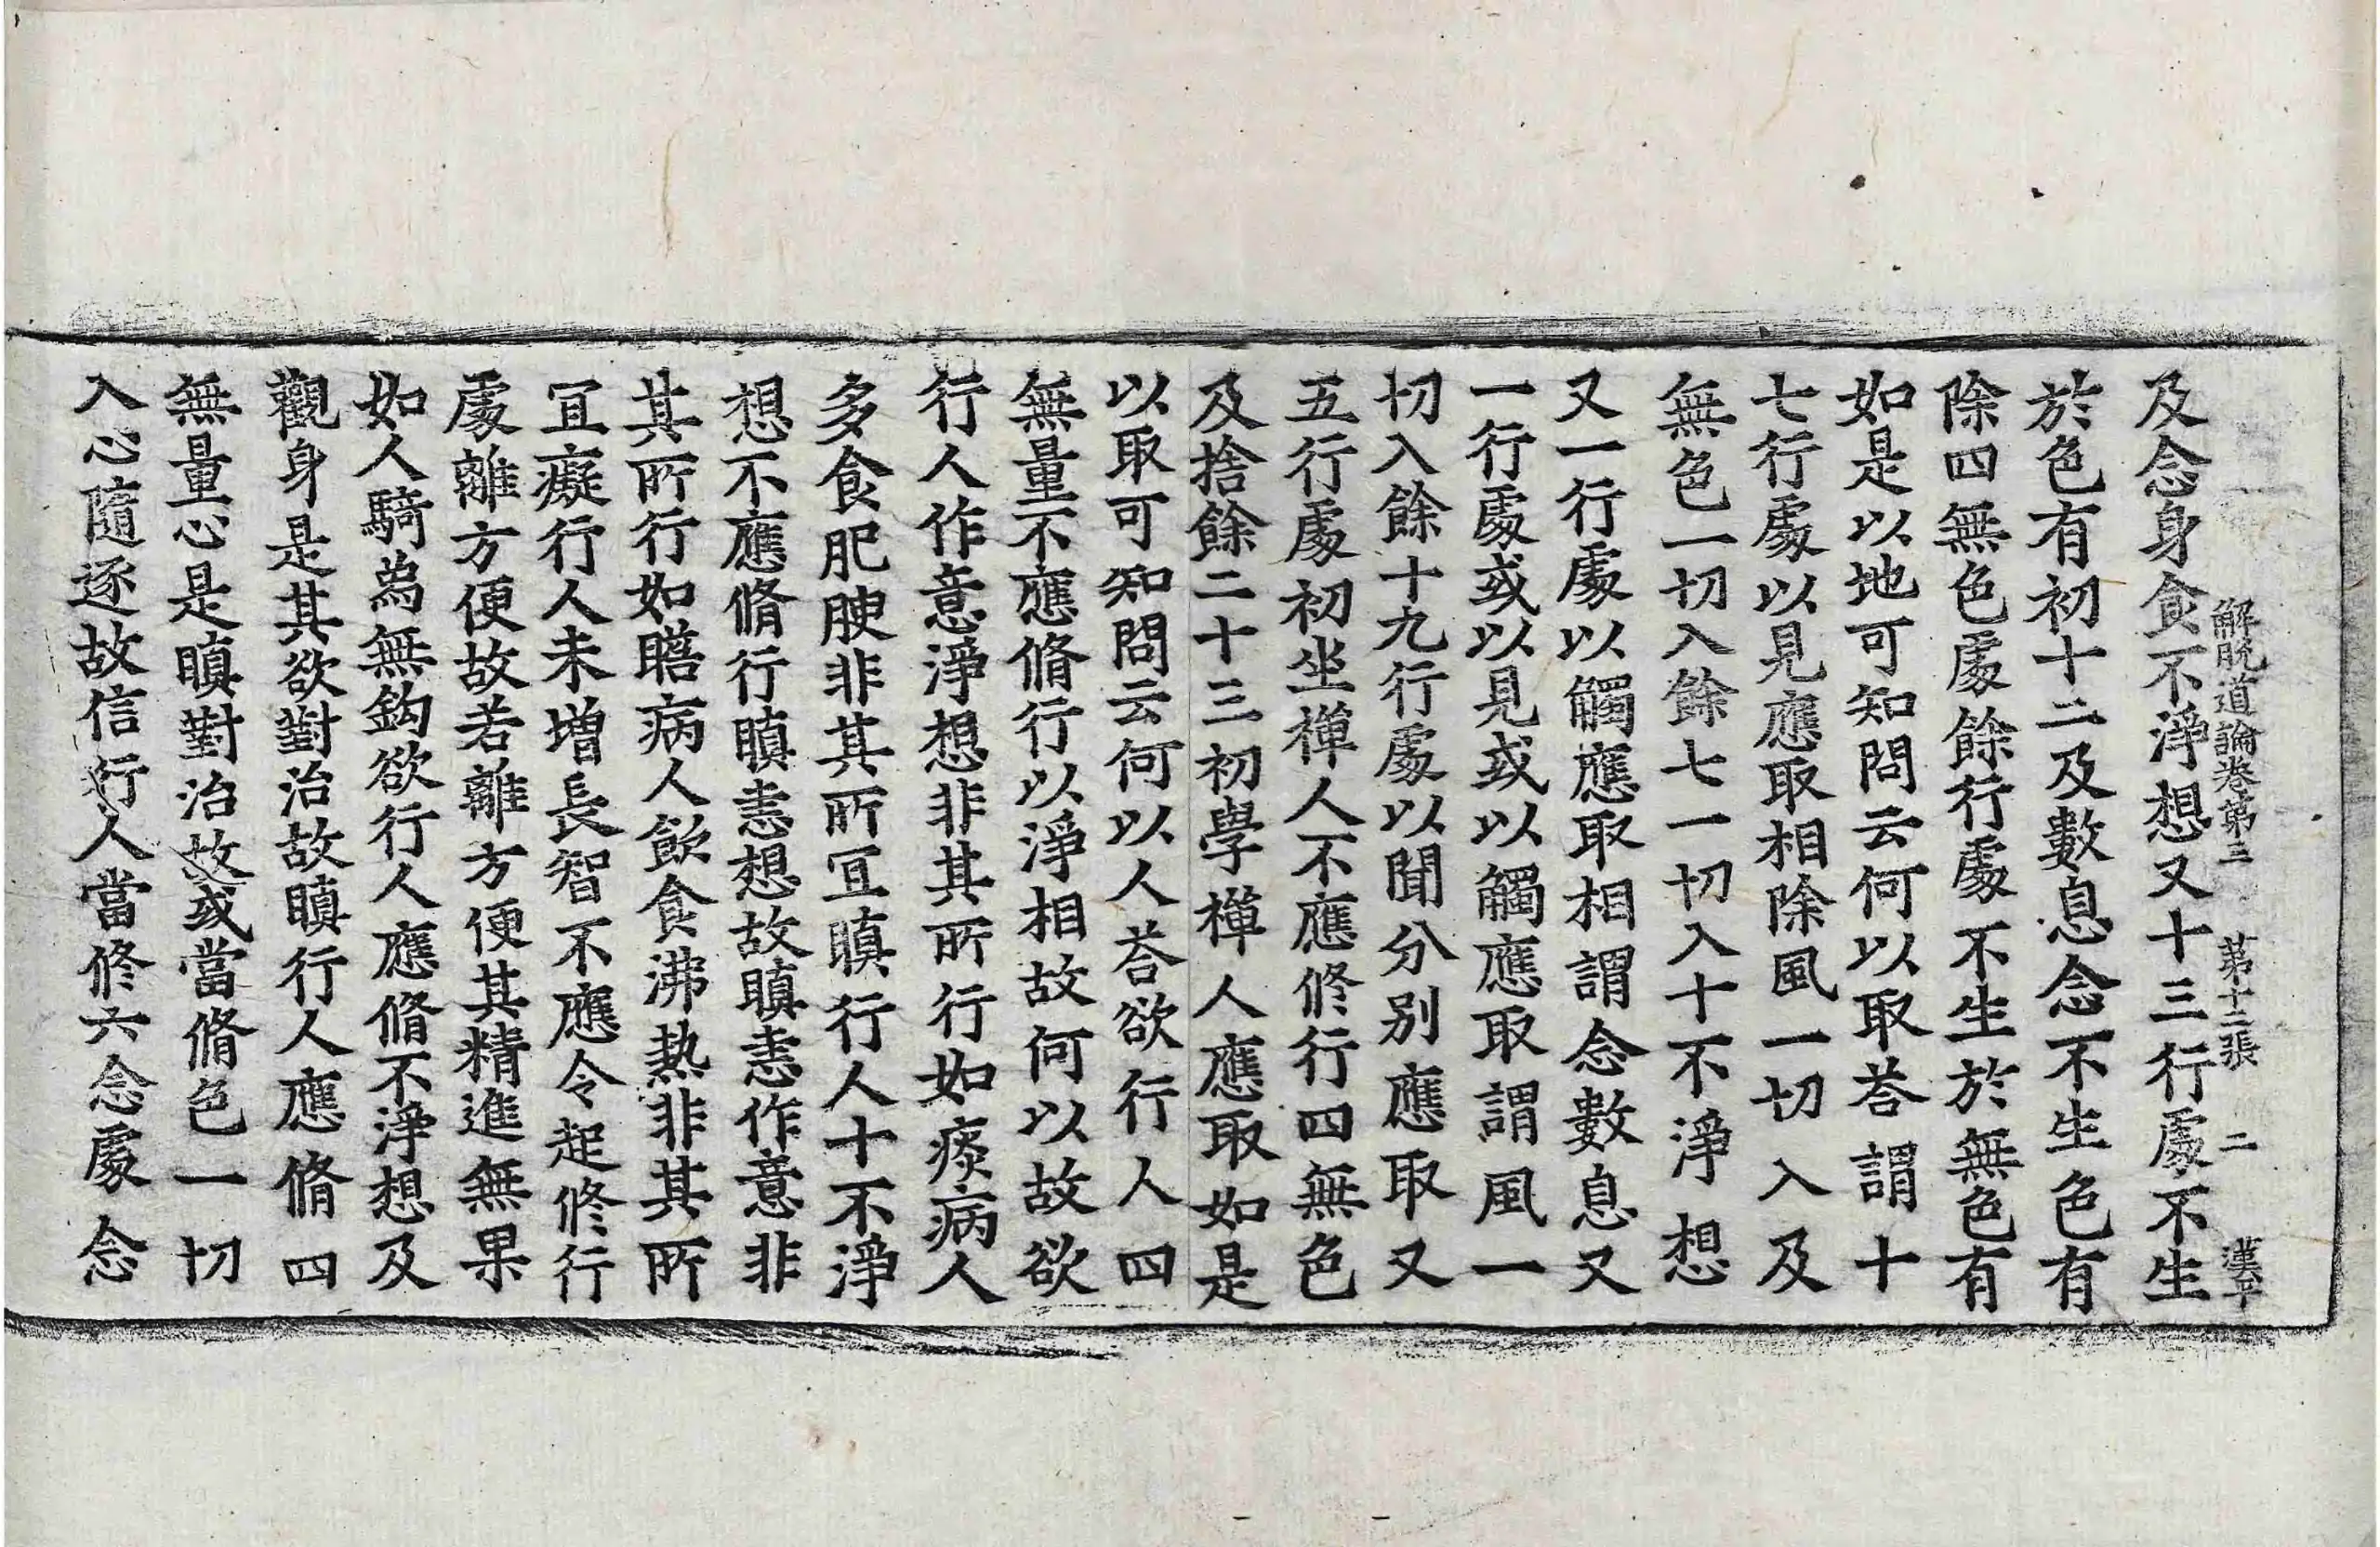 解脫道論卷第三 第十二張 二 漢平
及念身食不淨想又十三行處不生
於色有初十二及數息念不生色有
除四無色處餘行處不生於無色有
如是以地可知問云何以取荅謂十
七行處以見應取相除風一切入及
無色一切入餘七一切入十不淨想
又一行處以觸應取相謂念數息又
一行處或以見或以觸應取謂風一
切入餘十九行處以聞分別應取又
五行處初坐禪人不應修行四無色
及捨餘二十三初學禪人應取如是
以取可知問云何以人荅欲行人四
無量不應脩行以淨相故何以故欲
行人作意淨想非其所行如痰病人
多食肥腴非其所冝瞋行人十不淨
想不應脩行瞋恚想故瞋恚作意非
其所行如瞻病人飲食沸熱非其所
冝癡行人未增長智不應令起修行
處離方便故若離方便其精進無果
如人騎為無鈎欲行人應脩不淨想及
觀身是其欲對治故瞋行人應脩四
無量心是瞋對治故或當脩色一切
入心隨逐故信行人當修六念處念